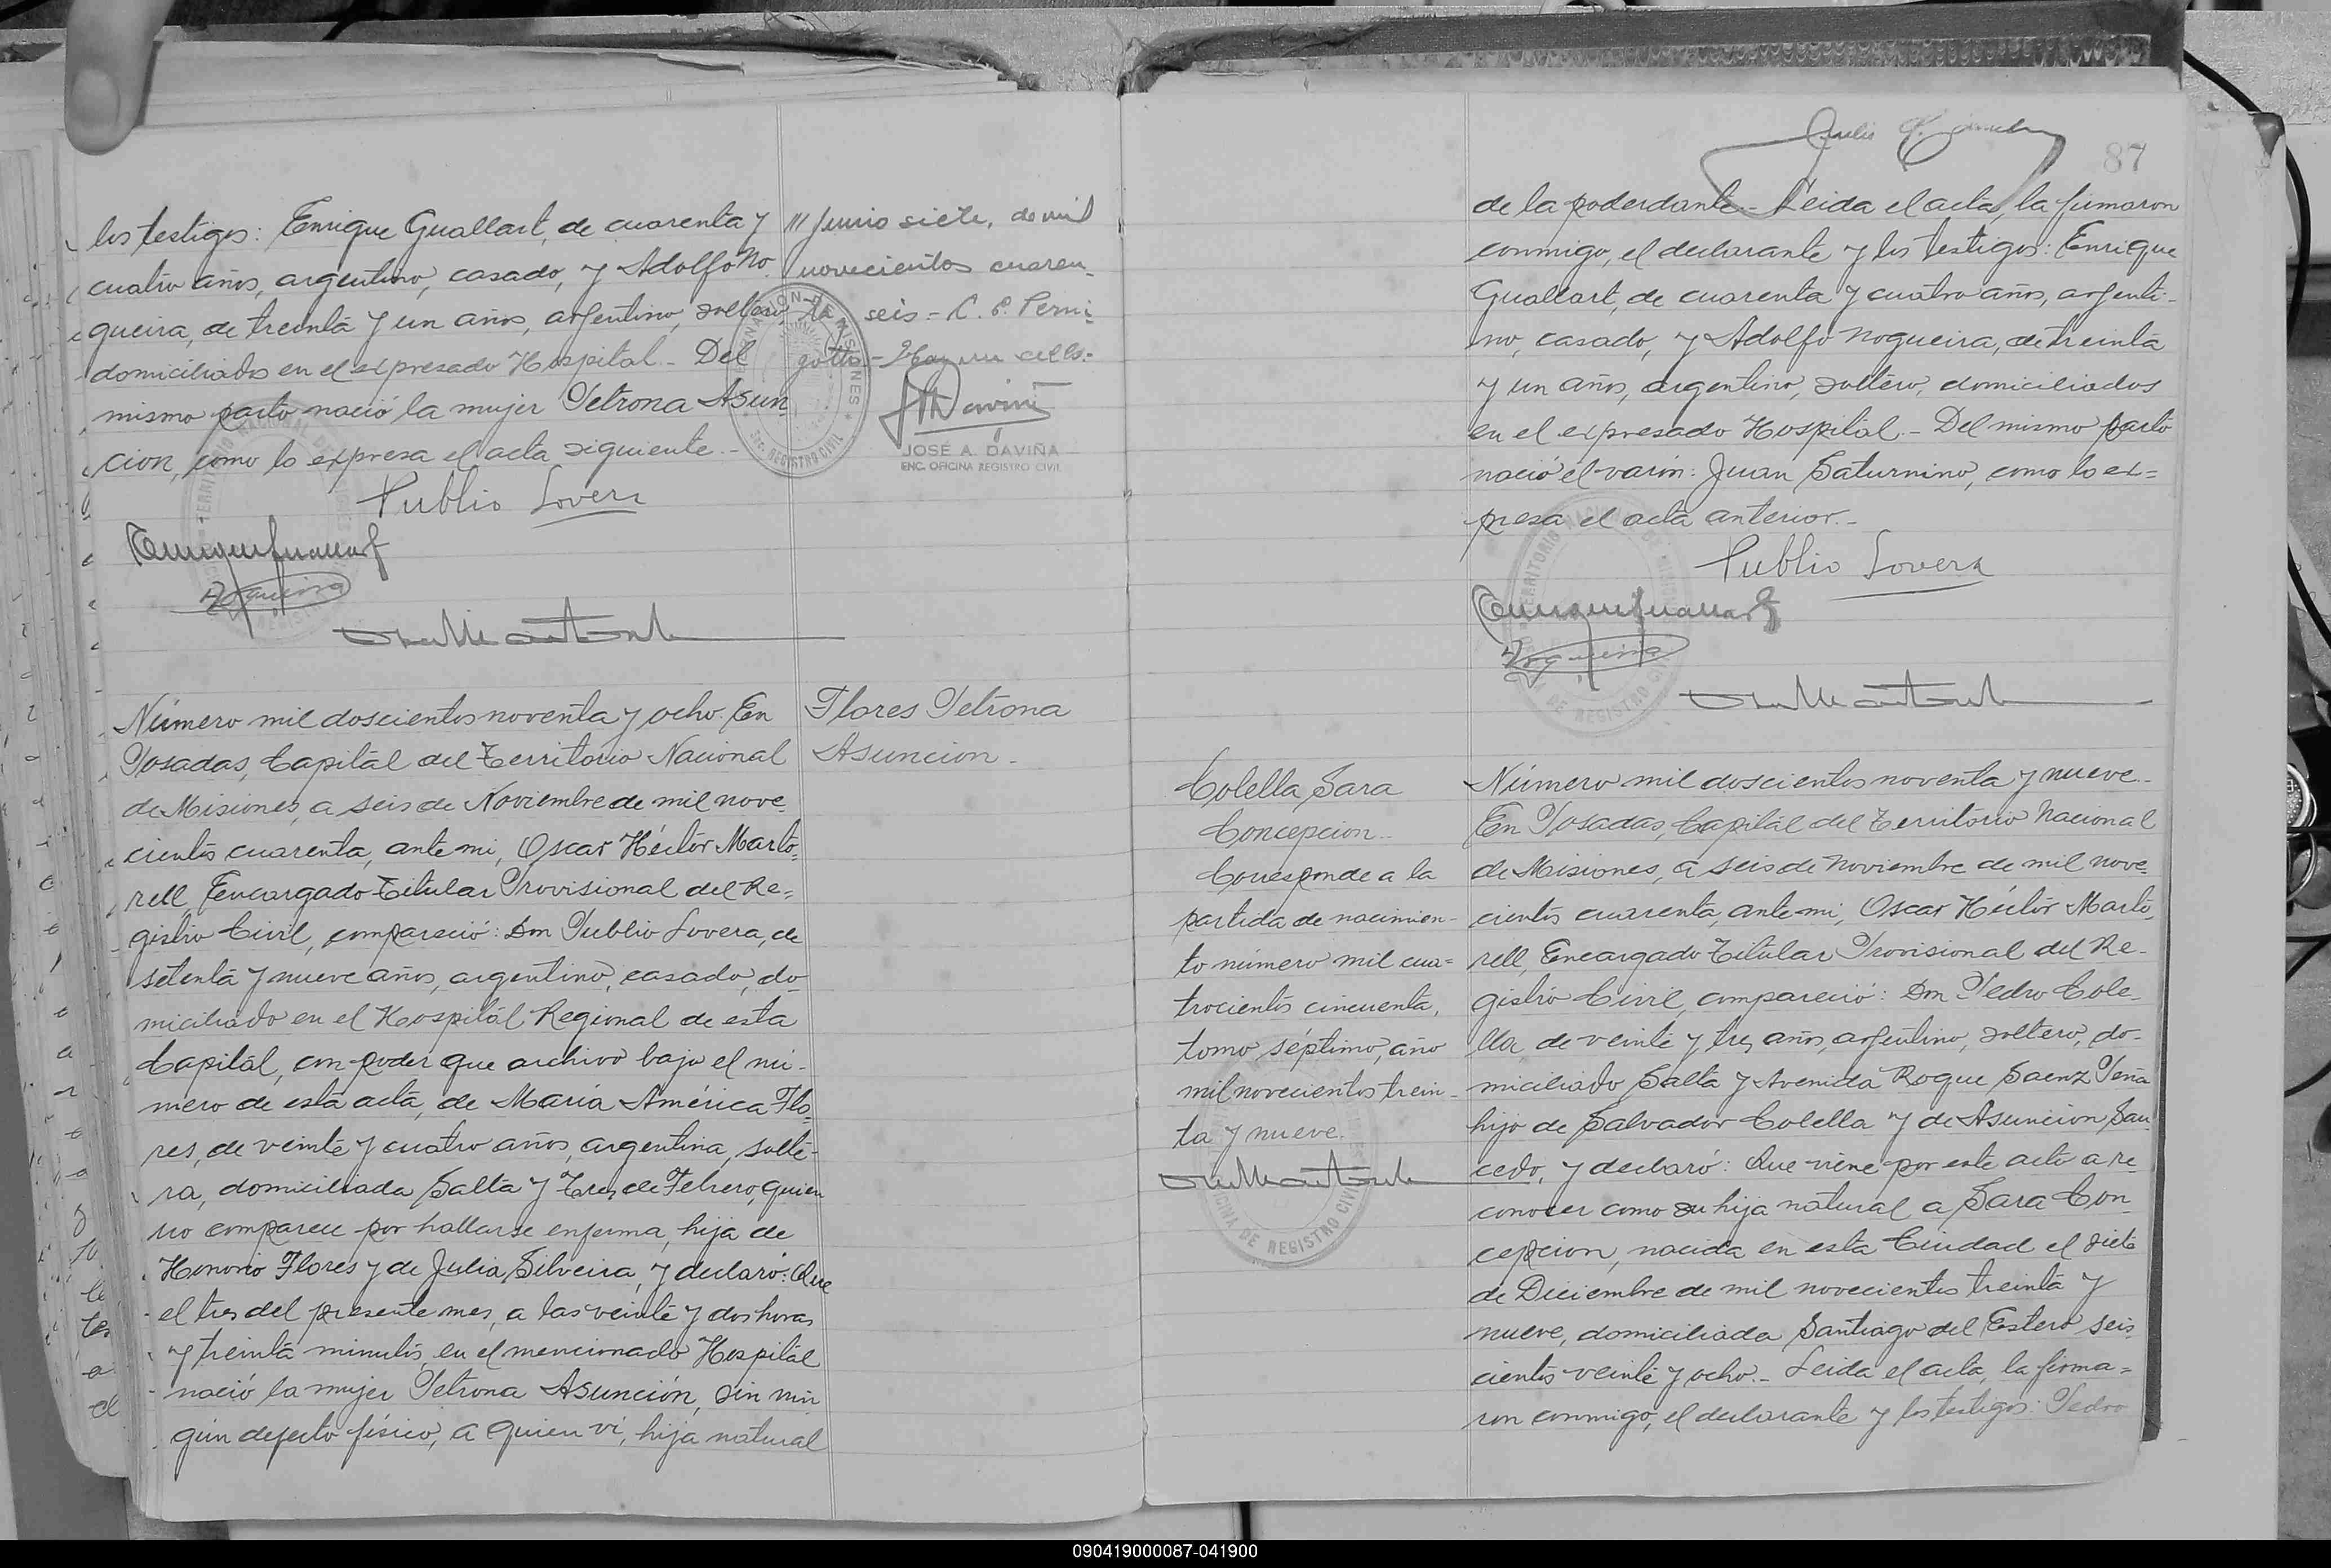 los testigos: Enrique Guallart, de cuarenta y
cuatro años, argentino, casado, y Adolfo No
queira, de treinta y un años, argentino, soltero
domiciliados en el expresado Hospital.- Del
mismo parto nació la mujer Petrona Asun
cion, como lo expresa el acta siguiente.-
Publio Lovera
/// Junio siete, de mil
novecientos cuaren-
ta seis = C. P. Perni-
gotti - Hay un sello.-
JOSÉ A. DAVIÑA
ENC. OFICINA REGISTRO CIVIL
Número mil doscientos noventa y ocho. En
Posadas, Capital del Territorio Nacional
de Misiones, a seis de Noviembre de mil nove
cientos cuarenta, ante mi, Oscar Héctor Marto-
rell, Encargado Titular Provisional del Re-
gistro Civil, compareció: Don Publio Lovera, de
setenta y nueve años, argentino, casado, do-
miciliado en el Hospital Regional de esta
Capital, con poder que archivo bajo el nú-
mero de esta acta, de María América Flo-
res, de veinte y cuatro años, argentina, solte-
ra, domiciliada Salta y Tres de Febrero, quien
no comparece por hallarse enferma, hija de
Honorio Flores y de Julia Silveira, y declaró: Que
el tres del presente mes, a las veinte y dos horas
y treinta minutos, en el mencionado Hospital
nació la mujer Petrona Asunción, sin nin
gún defecto físico, a quien vi, hija natural
Flores Petrona
Asuncion.-
87
de la poderdante.- Leida el acta, la firmaron
conmigo, el declarante y los testigos: Enrique
Guallart, de cuarenta y cuatro años, argenti-
no, casado, y Adolfo Nogueira, de treinta
y un años, argentino, soltero, domiciliados
en el expresado Hospital.- Del mismo parto
nació el varón: Juan Saturnino, como lo ex=
presa el acta anterior.-
Publio Lovera
Colella Sara
Concepcion.-
Corresponde a la
partida de nacimien-
to número mil cua=
trocientos cincuenta,
tomo séptimo, año
mil novecientos trein-
ta y nueve.
Número mil doscientos noventa y nueve.-
En Posadas, Capital del Territorio Nacional
de Misiones, a seis de Noviembre de mil nove-
cientos cuarenta, ante mi, Oscar Héctor Marto-
rell, Encargado Titular Provisional del Re-
gistro Civil, compareció: Don Pedro Cole-
lla, de veinte y tres años, argentino, soltero, do-
miciliado Salta y Avenida Roque Saenz Peña
hijo de Salvador Colella y de Asuncion Sau
cedo, y declaró: Que viene por este acto a re-
conocer como su hija natural a Sara Con-
cepcion, nacida en esta Ciudad el siete
de Diciembre de mil novecientos treinta y
nueve, domiciliada Santiago del Estero seis
cientos veinte y ocho.- Leida el acta, la firma=
ron conmigo, el declarante y los testigos: Pedro
090419000087-041900